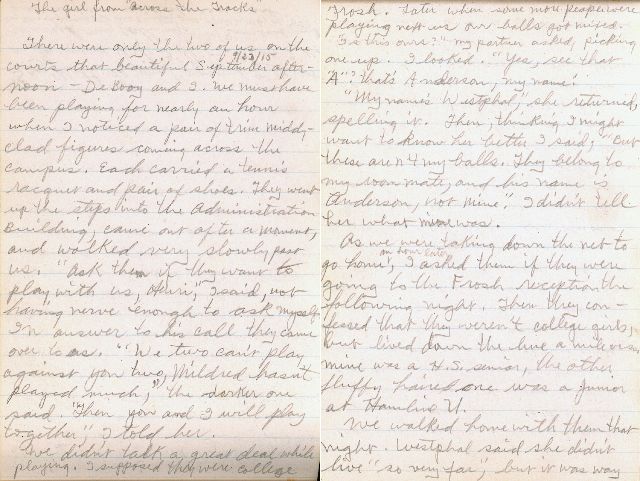 The girl from across the Tracks
There were only the two of us on the
courts that beautiful September after-
9/23/15
noon - DeBooy and I. We must have
been playing for nearly an hour
when I noticed a pair of trim middy-
clad figures coming across the
campus. Each carried a tennis
racquet and pair of shoes. They went
up the steps into the Administration
Building, came out after a moment,
and walked very slowly past
us. "Ask them if they want to
play with us, Henri," I said, not
having nerve enough to ask myself.
In answer to his call they came
over to us. "We two can't play
against you two, Mildred hasn't
played much," the darker one
said. "Then you and I will play
together" I told her.
We didn't talk a great deal while
playing. I supposed they were college
Frosh. Later when some more people were
playing next us our balls got mixed.
"Is this ours?" my partner asked, picking
one up. I looked. "Yes, see that
"A"? that's Anderson, my name."
"My name's Westphal," she returned,
spelling it. Then, thinking I might
want to know her better I said, "But
these aren't my balls. They belong to
my room mate, and his name is
Anderson, not mine," I didn't tell
her what mine was.
As we were taking down the net to
an hour later
go home, I asked them if they were
going to the Frosh reception the
following night. Then they con-
fessed that they weren't college girls,
but lived down the line a mile or so,
mine was a H.S. senior, the other
fluffy haired one was a junior
at Hamline U.
We walked home with them that
night. Westphal said she didn't
live "so very far", but it was way